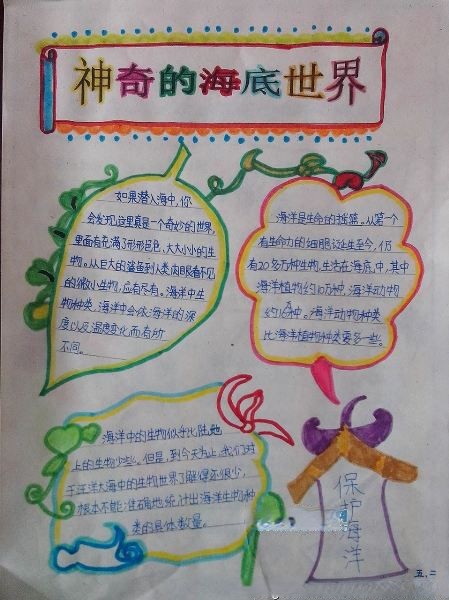 神奇的海底世界
如果潜入海中,你
会发现这里真是一个奇妙的世界,
里面布满了形形色色,大大小小的生
物。从巨大的鲨鱼到人类肉眼看不见
的微小生物,应有尽有。海洋中生
物种类,海洋中会依海洋的深
度以及温度变化而有所
不同。
海洋是生命的摇篮。从第一个
有生命力的细胞诞生至今,仍
有20多万种生物,生活在海底,中,其中
海洋植物约10万种,海洋动物
约16万种。海洋动物种类
比海洋植物种类要多一些。
海洋中的生物似乎比陆地
上的生物少些。但是,到今天为止,我们对
于汪洋大海中的生物世界了解得还很少,
根本不能准确地统计出海洋生物种
类的具体数量。
保护海洋
五、二